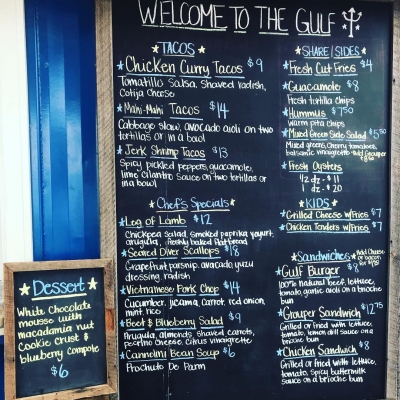 WELCOME TO THE GULF
TACOS
Chicken Curry Tacos $9
Tomatillo Salsa, Shaved radish,
Cotija cheese
Mahi-Mahi Tacos $14
Cabbage slaw, avocado aioli on two
tortillas or in a bowl
Jerk Shrimp Tacos $13
Spicy pickled peppers, guacamole,
lime cilantro sauce on two tortillas or
in a bowl
Chef's Specials
Leg of Lamb $12
Chickpea salad, smoked paprika yogurt,
arugula, freshly baked flatbread
Seared Diver Scallops $18
Grapefruit parsnip, avocado, yuzu
dressing, radish
Vietnamese Pork Chop $14
Cucumber, jicama, carrot, red onion,
mint, rice
Beet & Blueberry Salad $9
Arugula, almonds, shaved carrots,
pecorino cheese, citrus vinaigrette
Cannelini Bean Soup $6
Proschuto De Parm
SHARE/SIDES
Fresh Cut Fries $4
Guacamole $8
Fresh tortilla chips
Hummus $7.50
Warm pita chips
Mixed Green Side Salad $5.50
Mixed greens, Cherry tomatoes,
balsamic vinaigrette - Add Grouper
Fresh Oysters
1/2 dz - $11
1 dz - $20
KIDS
Grilled Cheese w/Fries $7
Chicken Tenders w/Fries $7
Sandwiches Add Cheese
or bacon
for
Gulf Burger $8
100% natural beef, lettuce,
tomato, garlic aioli on a brioche
bun
Grouper Sandwich $12.75
Grilled or fried with lettuce,
tomato, lemon dill sauce on a
brioche bun
Chicken Sandwich $8
Grilled or fried with lettuce,
tomato, Spicy buttermilk
sauce on a brioche bun
Dessert
White chocolate
mousse with
macadamia nut
cookie crust &
blueberry compote
$6